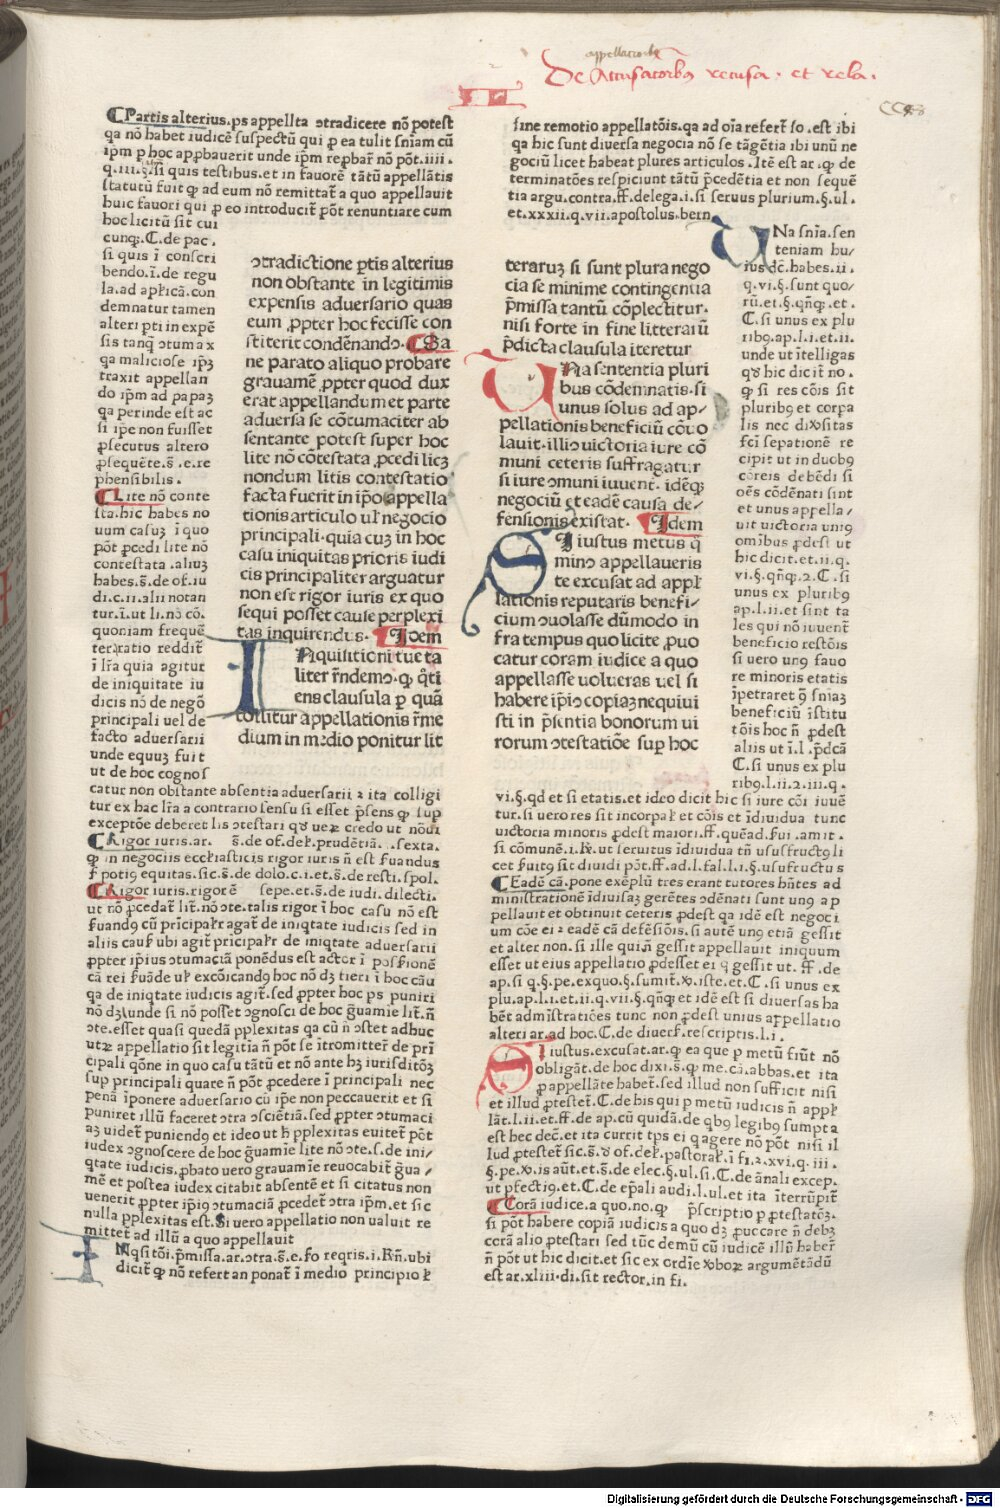 appellacōibꝰ
De Accusatōrbꝯ recusa. et rela.
II
¶Partis alterius.ps appellta ɔtradicere nō potest
qa nō habet iudicē suspectū qui ꝑ ea tulit sniam cū
ipm ꝑ hoc appbauerit unde ipm repbar nō pōt.iiii.
q.iii.§.si quis testibus.et in fauorē tātū appellātis
statutū fuit ꝙ ad eum nō remittat a quo appellauit
huic fauori qui ꝑ eo introducit pōt renuntiare cum
hoc licitū sit cui
cunqꝫ.C.de pac.
si quis ī conscri
bendo.ī.de regu
la.ad aplicā.con
demnatur tamen
alteri pti in expē
sis tanq̄ ɔtuma x
qa maliciose ipꝫ
traxit appellan
do ipm ad papaꝫ
qa perinde est ac
si ipe non fuisset
ꝓsecutus altero
ꝓsequēte.s̄.e.re
phensibilis.
¶Lite nō conte
sta.hic habes no
uum casuꝫ ī quo
pōt ꝓcedi lite nō
contestata.aliuꝫ
habes.s̄.de of.iu
di.c.ii.alii notan
tur.ī.ut li.nō cō.
quoniam frequē
ter.ratio reddit
ī lra quia agitur
de iniquitate iu
dicis nō de negō
principali uel de
facto aduersarii
unde equuꝫ fuit
ut de hoc cognos
catur non obstante absentia aduersarii ⁊ ita colligi
tur ex hac lra a contrario sensu si esset p̄sens ꝙ sup
exceptōe deberet lis ɔtestari qd ueꝝ credo ut nōui
¶Rigor iuris.ar. s̄.de of.del.prudētiā. .sexta.
ꝙ in negociis ecclasticis rigor iuris n̄ est fuandus
ꝫ potiꝯ equitas.sic.s̄.de dolo.c.i.et.s̄.de resti.spol.
¶Rigor iuris.rigorē sepe.et.s̄.de iudi.dilecti.
ut nō ꝓcedat lit.nō ɔte.talis rigor ī hoc casu nō est
fuandꝯ cū prīcipalr agat de iniqtate iudicis sed in
aliis caus ubi agit prīcipalr de iniqtate aduersarii
ꝓpter ipius ɔtumaciā ponēdus est actor ī possionē
cā rei fuāde ul excōicandꝯ hoc nō dꝫ fieri ī hoc cāu
qa de iniqtate iudicis agit.sed ꝓpter hoc ps puniri
nō dꝫ.unde si nō posset ɔgnosci de hoc g̃uamie lit.n̄
ɔte.esset quasi quedā pplexitas qa cū n̄ ɔstet adhuc
utꝝ appellatio sit legitia n̄ pōt se ītromitter de prī
cipali qōne in quo casu tātū et nō ante hꝫ iurisditōꝫ
sup principali quare n̄ pōt ꝓcedere ī principali nec
penā īponere aduersario cū ipe non peccauerit et si
puniret illū faceret ɔtra ɔsciētiā.sed ꝓpter ɔtumaci
aꝫ uidet puniendꝯ et ideo ut h pplexitas euitet pōt
iudex ɔgnoscere de hoc g̃uamie lite nō ɔte.s.de ini/
qtate iudicis.ꝓbato uero grauamīe reuocabit g̃ua/
mē et postea iudex citabit absentē et si citatus non
uenerit ꝓpter ipiꝯ ɔtumaciā ꝓcedet ɔtra ipm.et sic
nulla pplexitas est.Si uero appellatio non ualuit re
mittet ad illū a quo appellauit
INqsitōi.p̄missa.ar.ɔtra.s̄.e.fo reqris.i.Rn̄.ubi
dicit ꝙ nō refert an ponat ī medio principio ꝉ
ɔtradictione ꝑtis alterius
non obstante in legitimis
expensis aduersario quas
eum ꝓpter hoc fecisse con
stiterit condēnando. ¶Sa
ne parato aliquo probare
grauamē ꝓpter quod dux
erat appellandum et parte
aduersa se cōtumaciter ab
sentante potest super hoc
lite nō cōtestata ꝓcedi licꝫ
nondum litis contestatio
facta fuerit in ip̄o appella
tionis articulo ul negocio
principali.quia cuꝫ in hoc
casu iniquitas prioris iudi
cis principaliter arguatur
non est rigor iuris ex quo
sequi posset cause perplexi
tas inquirendus. ¶Idem
INquisitioni tue ta
liter rn̄demꝯ.ꝙ q̄ti
ens clausula ꝑ quā
tollitur appellationis rīme
dium in medio ponitur lit
sine remotio appellatōis.qa ad oīa refert fo.est ibi
qa hic sunt diuersa negocia nō se tāgētia ibi unū ne
gociū licet habeat plures articulos.Itē est ar.ꝙ de
terminatōes respiciunt tātū p̄cedētia et non sequē
tia argu.contra.ff.delega.i.si seruus plurium.§.ul.
et.xxxii.q.vii.apostolus.bern.
teraruꝫ si sunt plura nego
cia se minime contingentia
p̄missa tantū cōplectitur.
nisi forte in fine litterarū
p̄dicta clausula iteretur
UNa sententia pluri
bus cōdemnatis.si
unus solus ad ap/
pellationis beneficiū cōuo
lauit.illiꝯ uictoria iure cō
muni ceteris suffragatur
si iure ɔmuni iuuent.idēqꝫ
negociū et eadē causa de/
fensionis existat. ¶Idem
SI iustus metus q̄
minꝯ appellaueris
te excusat ad appl
lationis reputaris benefi/
cium ɔuolasse dūmodo in
fra tempus quo licite ꝓuo
catur coram iudice a quo
appellasse uolueras uel si
habere ip̄iꝯ copiaꝫ nequiui
sti in p̄sentia bonorum ui
rorum ɔtestatiōe sup hoc
UNa snīa.sen
teniam hu/
ius dc̄.habes.ii.
q.vi.§.sunt quo/
rū.et.§.qn̄qꝫ.et.
C.si unus ex plu
ribꝯ.ap.l.i.et.ii.
unde ut ītelligas
qd hic dicit no.
ꝙ si res cōis sit
pluribꝯ et corpa
lis nec diuisitas
fci sepationē re
cipit ut in duobꝯ
cōreis debēdi si
oēs cōdēnati sint
et unus appella/
uit uictoria uniꝯ
omībus ꝓdest ut
hic dicit.et.ii.q.
vi.§.qn̄qꝫ.⁊.C.si
unus ex pluribꝯ
ap.l.ii.et sint ta
les qui nō iuuent
beneficio restōis
si uero unꝯ fauo
re minoris etatis
īpetraret ꝯ sniaꝫ
beneficiū īstitu
tōis hoc n̄ ꝓdest
aliis ut ī.l.p̄dcā
C.si unus ex plu
ribꝯ.l.ii.⁊.iii.q.
vi.§.qd et si etatis.et ideo dicit hic si iure cōi iuuē
tur.si uero res sit incorpal et cōis et īdiuidua tunc
uictoria minoris ꝓdest maiori.ff.quēad.fui.amit.
si cōmune.i.Rr.ut seruitus īdiuidua tn̄ ususfructꝯ li
cet fuitꝯ sic diuidi pōt.ff.ad.l.fal.l.i.§.ususfructus
¶Eadē cā.pone exēplū tres erant tutores hn̄tes ad
ministrationē īdiuisaꝫ gerētes ɔdēnati sunt unꝯ ap
pellauit et obtinuit ceteris ꝓdest qa idē est negoci
um cōe ei ⁊ eadē cā defēsiōis.si autē unꝯ etiā gessit
et alter non.si ille qui n̄ gessit appellauit iniquum
esset ut eius appellatio ꝓdesset ei q gessit ut.ff.de
ap.si q.§.pe.exquo.§.sumit.ꝟ.iste.et.C.si unus ex
plu.ap.l.i.et.ii.q.vii.§.qn̄qꝫ et idē est si diuersas ha
bēt admīstratiōes tunc non ꝓdest unius appellatio
alteri ar.ad hoc.C.de diuers.rescriptis.l.i.
SI iustus.excusat.ar.ꝙ ea que ꝑ metū fiūt nō
obligāt.de hoc dixi.s̄.ꝙ me.cā.abbas.et ita
ꝓ appellāte habet.sed illud non sufficit nisi
et illud ꝓtestet.C.de his qui ꝑ metū iudicis n̄ appl
lāt.l.ii.et.ff.de ap.cū quidā.de qbꝯ legibꝯ sumpta
est hec dec̄.et ita currit tps ei q agere nō pōt nisi il
lud ꝓtestet sic.s̄.d of.del.pastoral.ī fi.⁊.xvi.q.iii.
§.pe.ꝟ.is aūt.et.s̄.de elec.§.ul.si.C.de ānali excep.
ut pfectiꝯ.et.C.de ep̄ali audi.l.ul.et ita īterrūpit
¶Corā iudice.a quo.no.ꝙ p̄scriptio ꝑ ꝓtestatōꝫ.
si pōt habere copiā iudicis a quo dꝫ ꝓuocare n̄ debꝫ
corā alio ꝓtestari sed tūc demū cū iudicē illū haber
n̄ pōt ut hic dicit.et sic ex ordīe ꝟboꝝ argumētādū
est ar.xliii.di.sit rector.in fi.
Digitalisierung gefördert durch die Deutsche Forschungsgemeinschaft - DFG